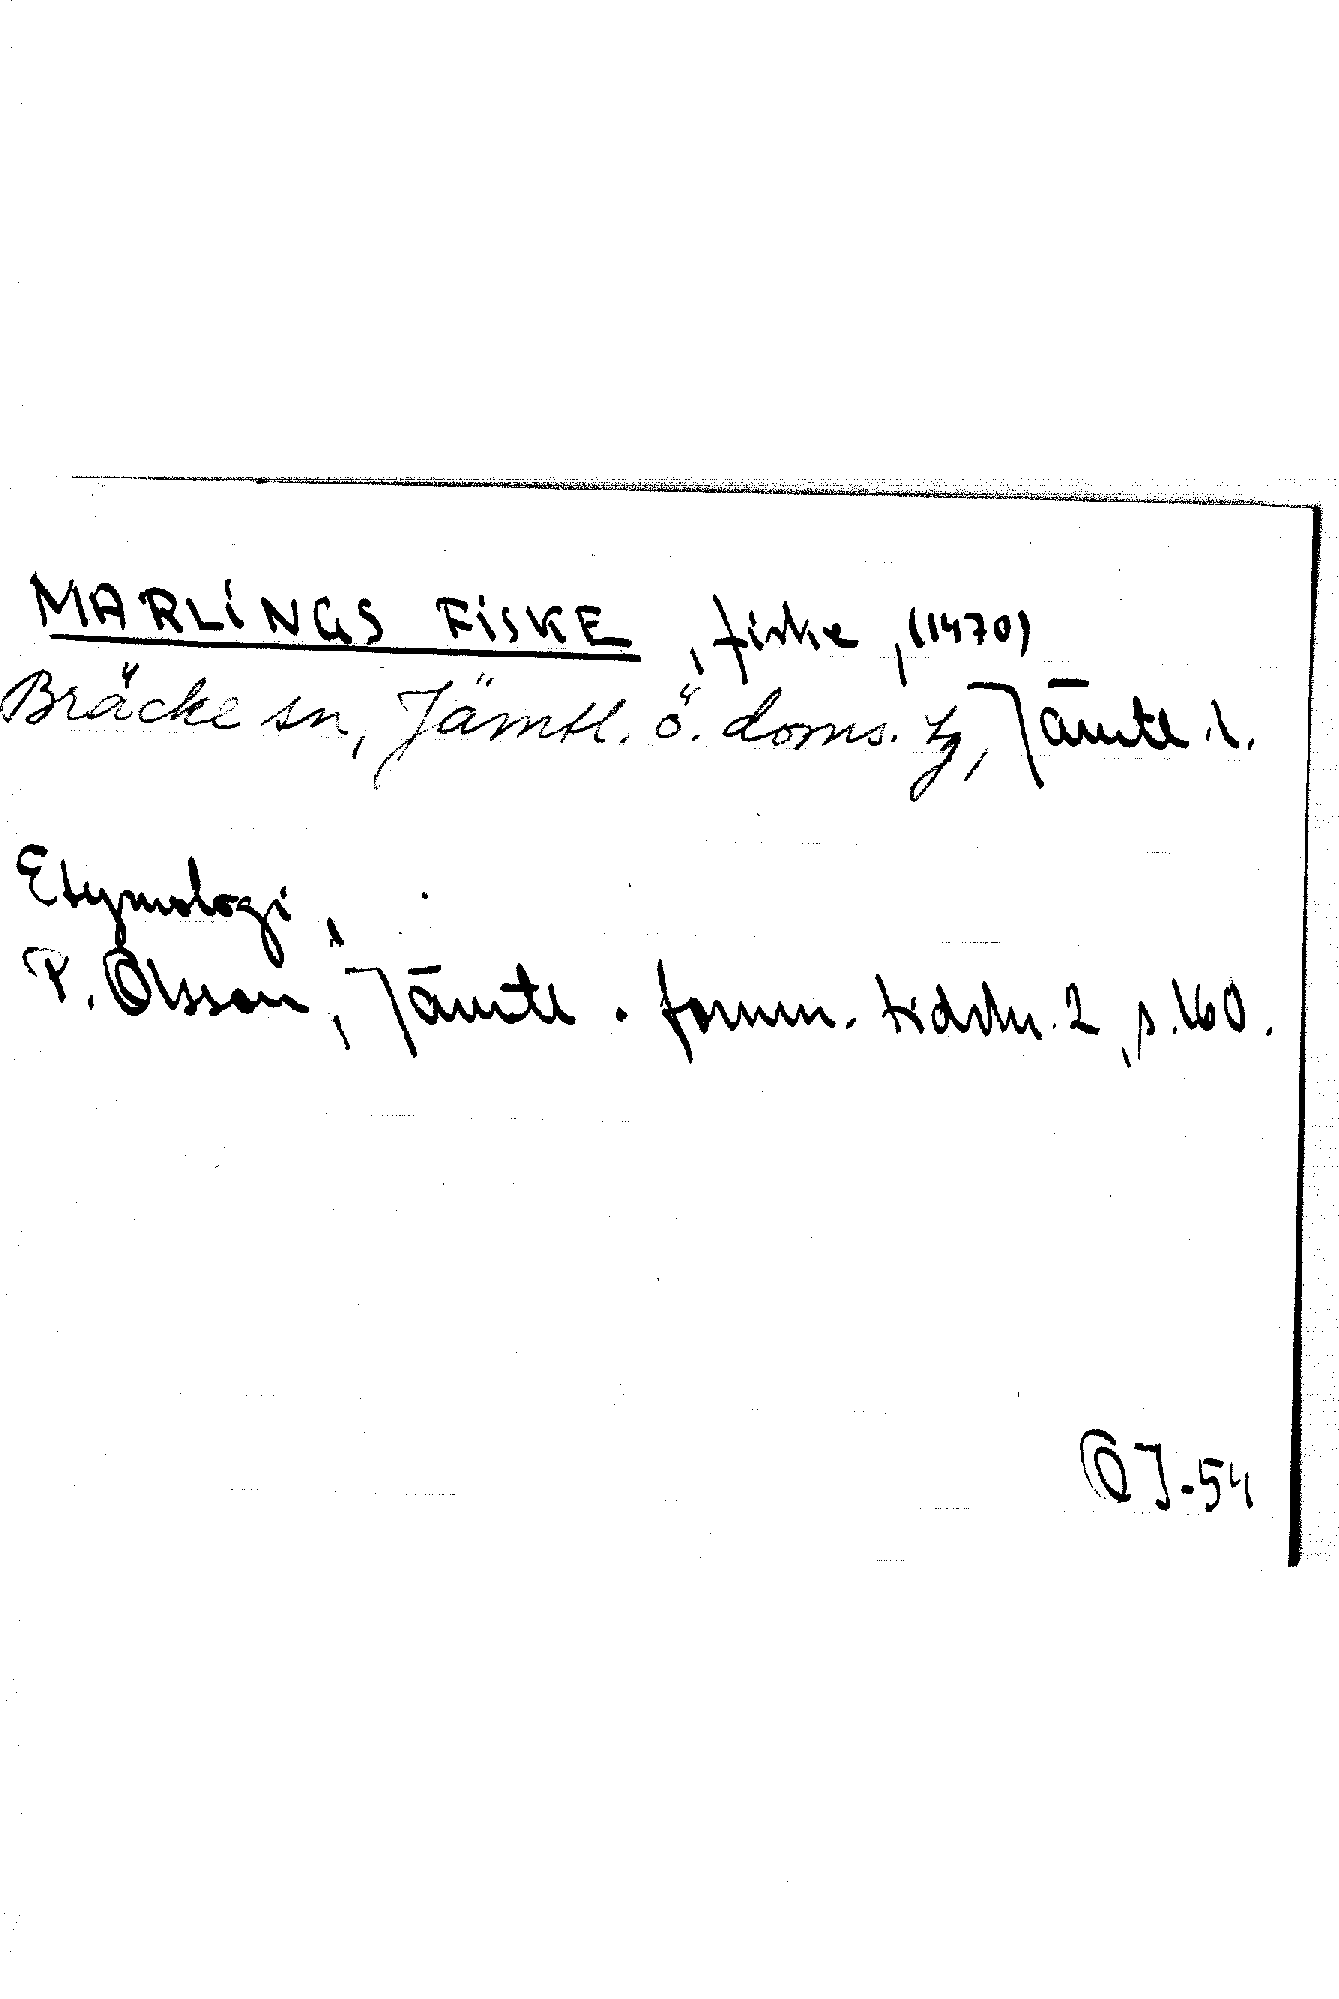 MARLINGS FISKE, fiske, (1470)
Bräcke sn, Jämtl. ö. doms. tg, Jämtl. l.
Etymologi,
P. Olsson, Jämtl. fornm. tidskr. 2, s. 160.
OJ-54